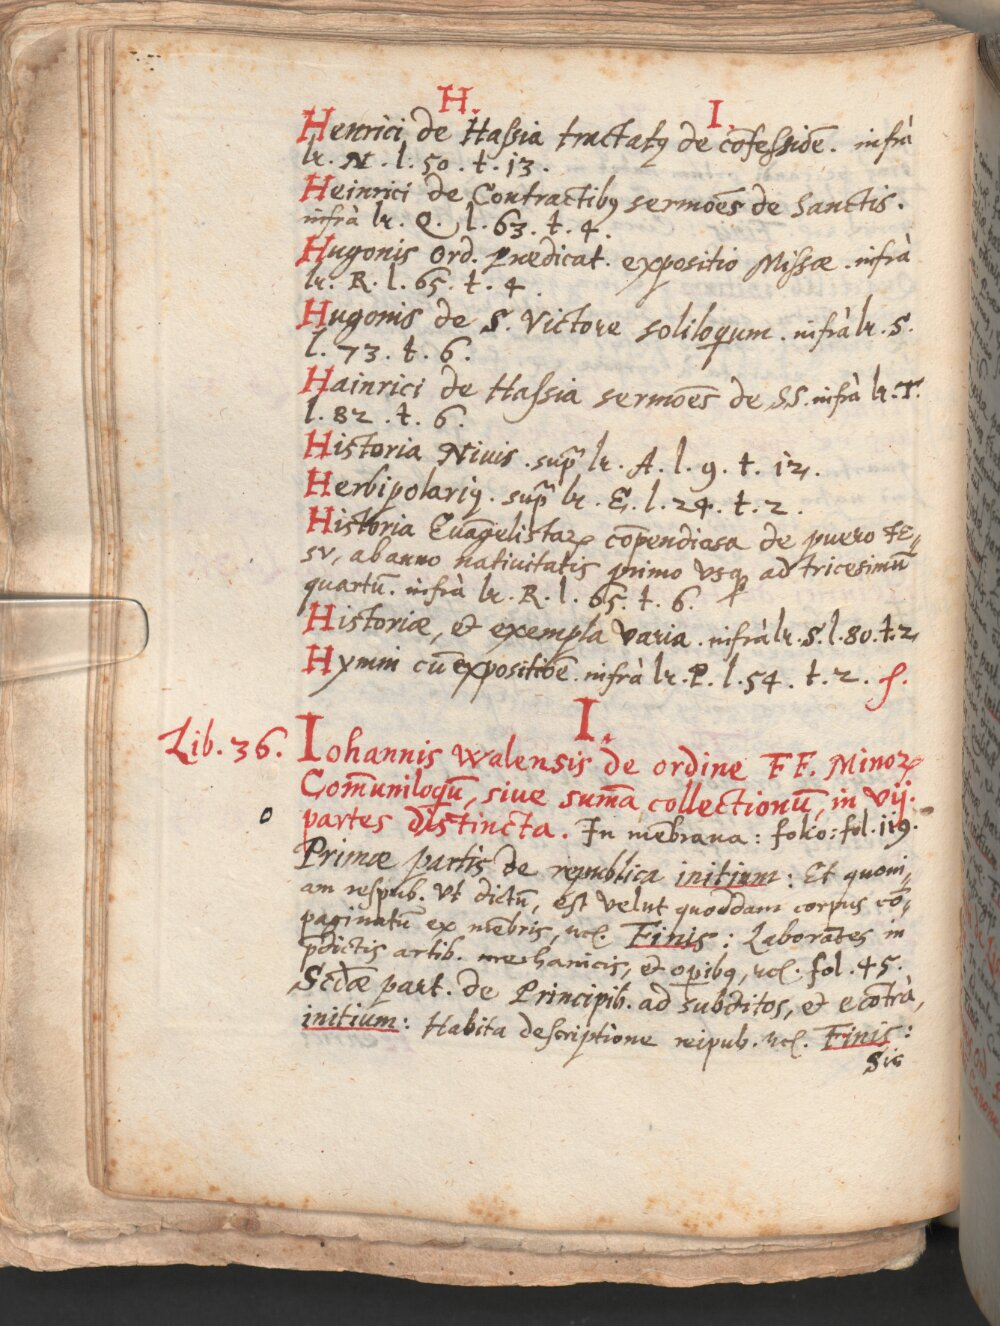 H. I.
Henrici de Hassia tractatꝯ de cōfessiōe. infrà
lr. N. l. 50. t. 13.
Heinrici de Contractibꝯ sermōes de Sanctis.
infrà lr. Q. l. 63. t. 4.
Hugonis Ord. Prædicat. expositio Missæ. infrà
lr. R. l. 65. t. 4
Hugonis de S. Victore soliloqium. infrà lr. S.
l. 73. t. 6.
Hainrici de Hassia sermōes de SS. infrà lr. T.
l. 82. t. 6.
Historia Nivis. sup̄ lr. A. l. 9. t. 12.
Herbipolariꝯ. sup̄ lr. E. l. 24. t. 2.
Historia Evāgelistaꝝ cōpendiosa de puero IE,
SV, ab anno nativitatis primo vsqꝫ ad tricesimū
quartū. infrà lr. R. l. 65. t. 6.
Historiæ, et exempla varia. infrà lr. S. l. 80. t. 2,
Hymni cū expositiōe. infrà lr. P. l. 54. t. 2. f.
I.
Lib. 36. Iohannis Walensis de ordine FF. Minoꝝ
Com̄uniloqū, siue sum̄a collectionū, in vij.
o partes distincta. In mēbrana: folio: fol. 119.
Primæ partis de republica initium: Et quoni,
am respub. vt dictū, est velut quoddam corpus cō,
paginatū ex mēbris, ꝛcl. Finis: Laborātes in
p̄dictis artib. mechanicis, et opibꝯ, ꝛcl. fol. 45.
Scdæ part. de Principib. ad subditos, et ecōtrà,
initium: Habita descriptione reipub. ꝛcl. Finis:
Sic